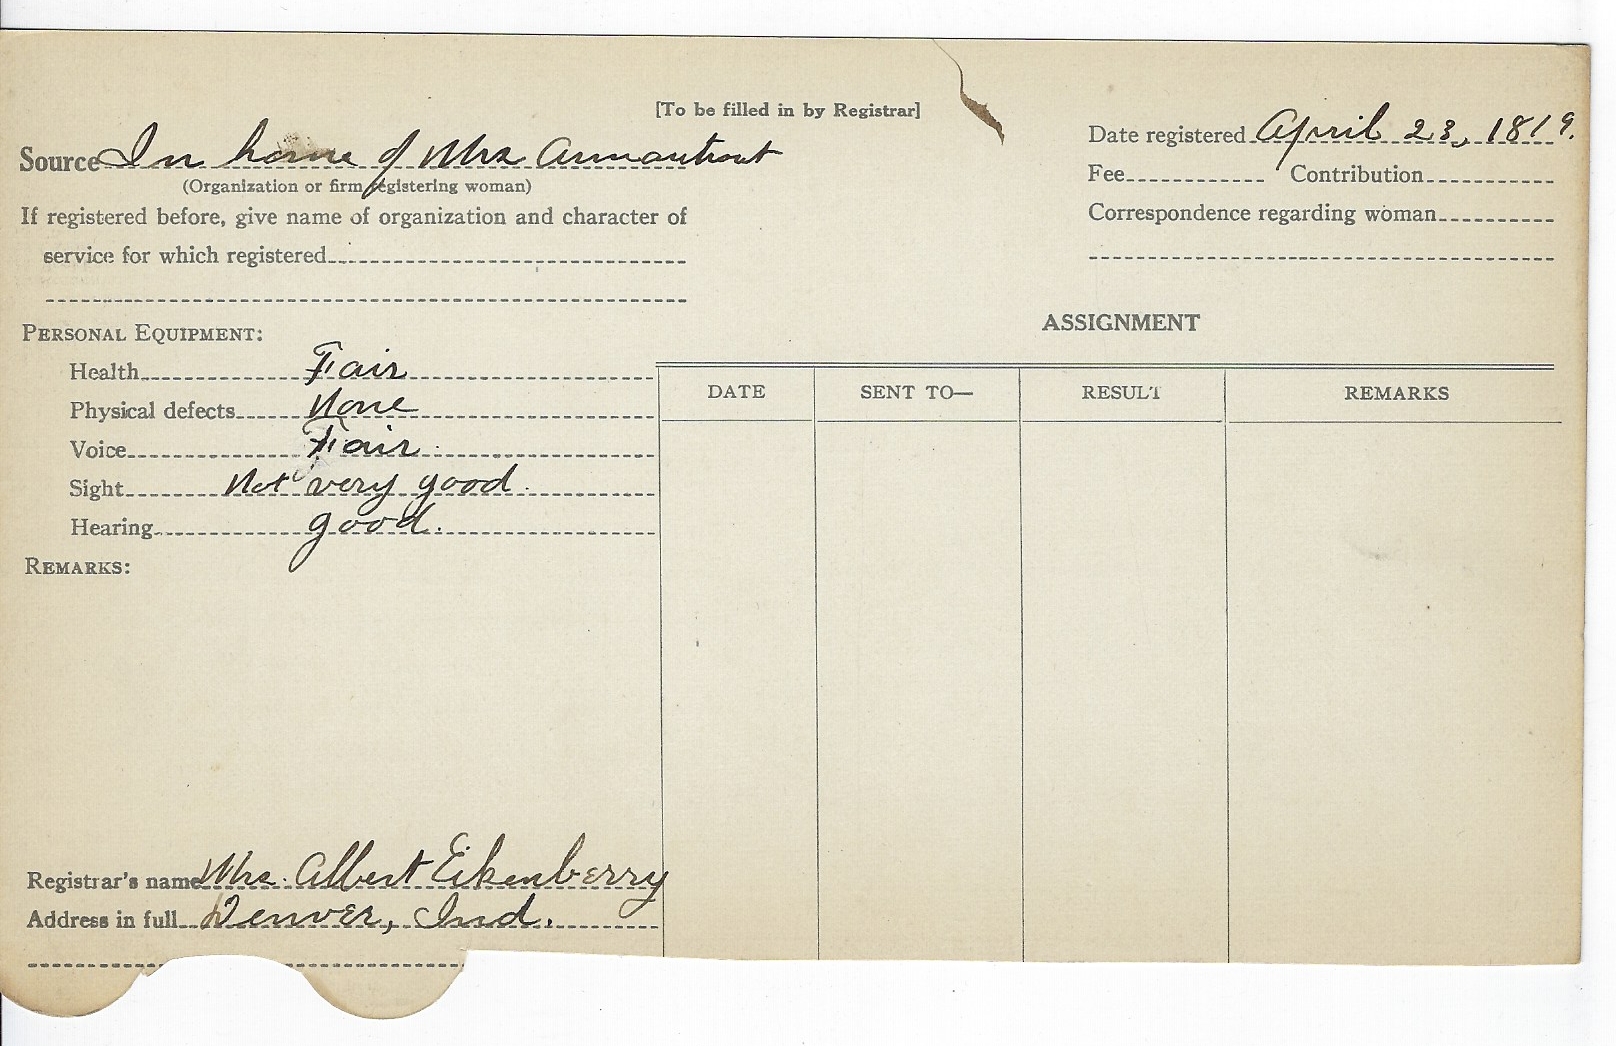 [To be filled in by Registrar]
Source In home of Mrs Armantrout
(Organization or firm registering woman)
If registered before, give name of organization and character of
service for which registered
Date registered April 23, 1819.
Fee Contribution
Correspondence regarding woman
PERSONAL EQUIPMENT:
Health Fair
Physical defects None
Voice Fair.
Sight Not very good.
Hearing good.
REMARKS:
ASSIGNMENT
DATE SENT TO— RESULT REMARKS
Registrar's name Mrs. Albert Eikenberry
Address in full Denver, Ind.